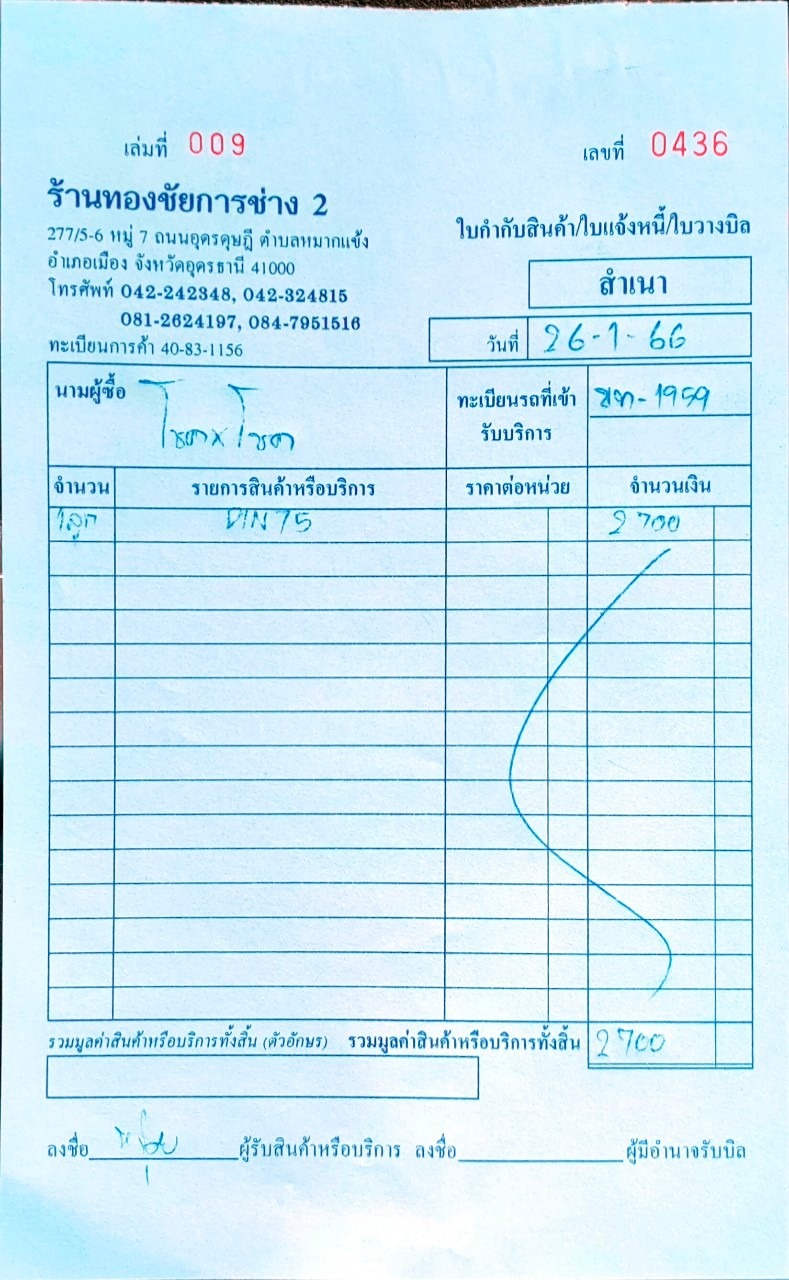 เล่มที่ 009
เลขที่ 0436
ร้านทองชัยการช่าง 2
277/5-6 หมู่ 7 ถนนอุดรดุษฎี ตำบลหมากแข้ง
อำเภอเมือง จังหวัดอุดรธานี 41000
โทรศัพท์ 042-242348, 042-324815
081-2624197, 084-7951516
ทะเบียนการค้า 40-83-1156
ใบกำกับสินค้า/ใบแจ้งหนี้/ใบวางบิล
สำเนา
วันที่ 26-1-66
นามผู้ซื้อ
ทะเบียนรถที่เข้า -1959
รับบริการ
จำนวน รายการสินค้าหรือบริการ ราคาต่อหน่วย จำนวนเงิน
1ลูก DIN 75 2700
รวมมูลค่าสินค้าหรือบริการทั้งสิ้น (ตัวอักษร) รวมมูลค่าสินค้าหรือบริการทั้งสิ้น 2700
ลงชื่อ ผู้รับสินค้าหรือบริการ ลงชื่อ ผู้มีอำนาจรับบิล